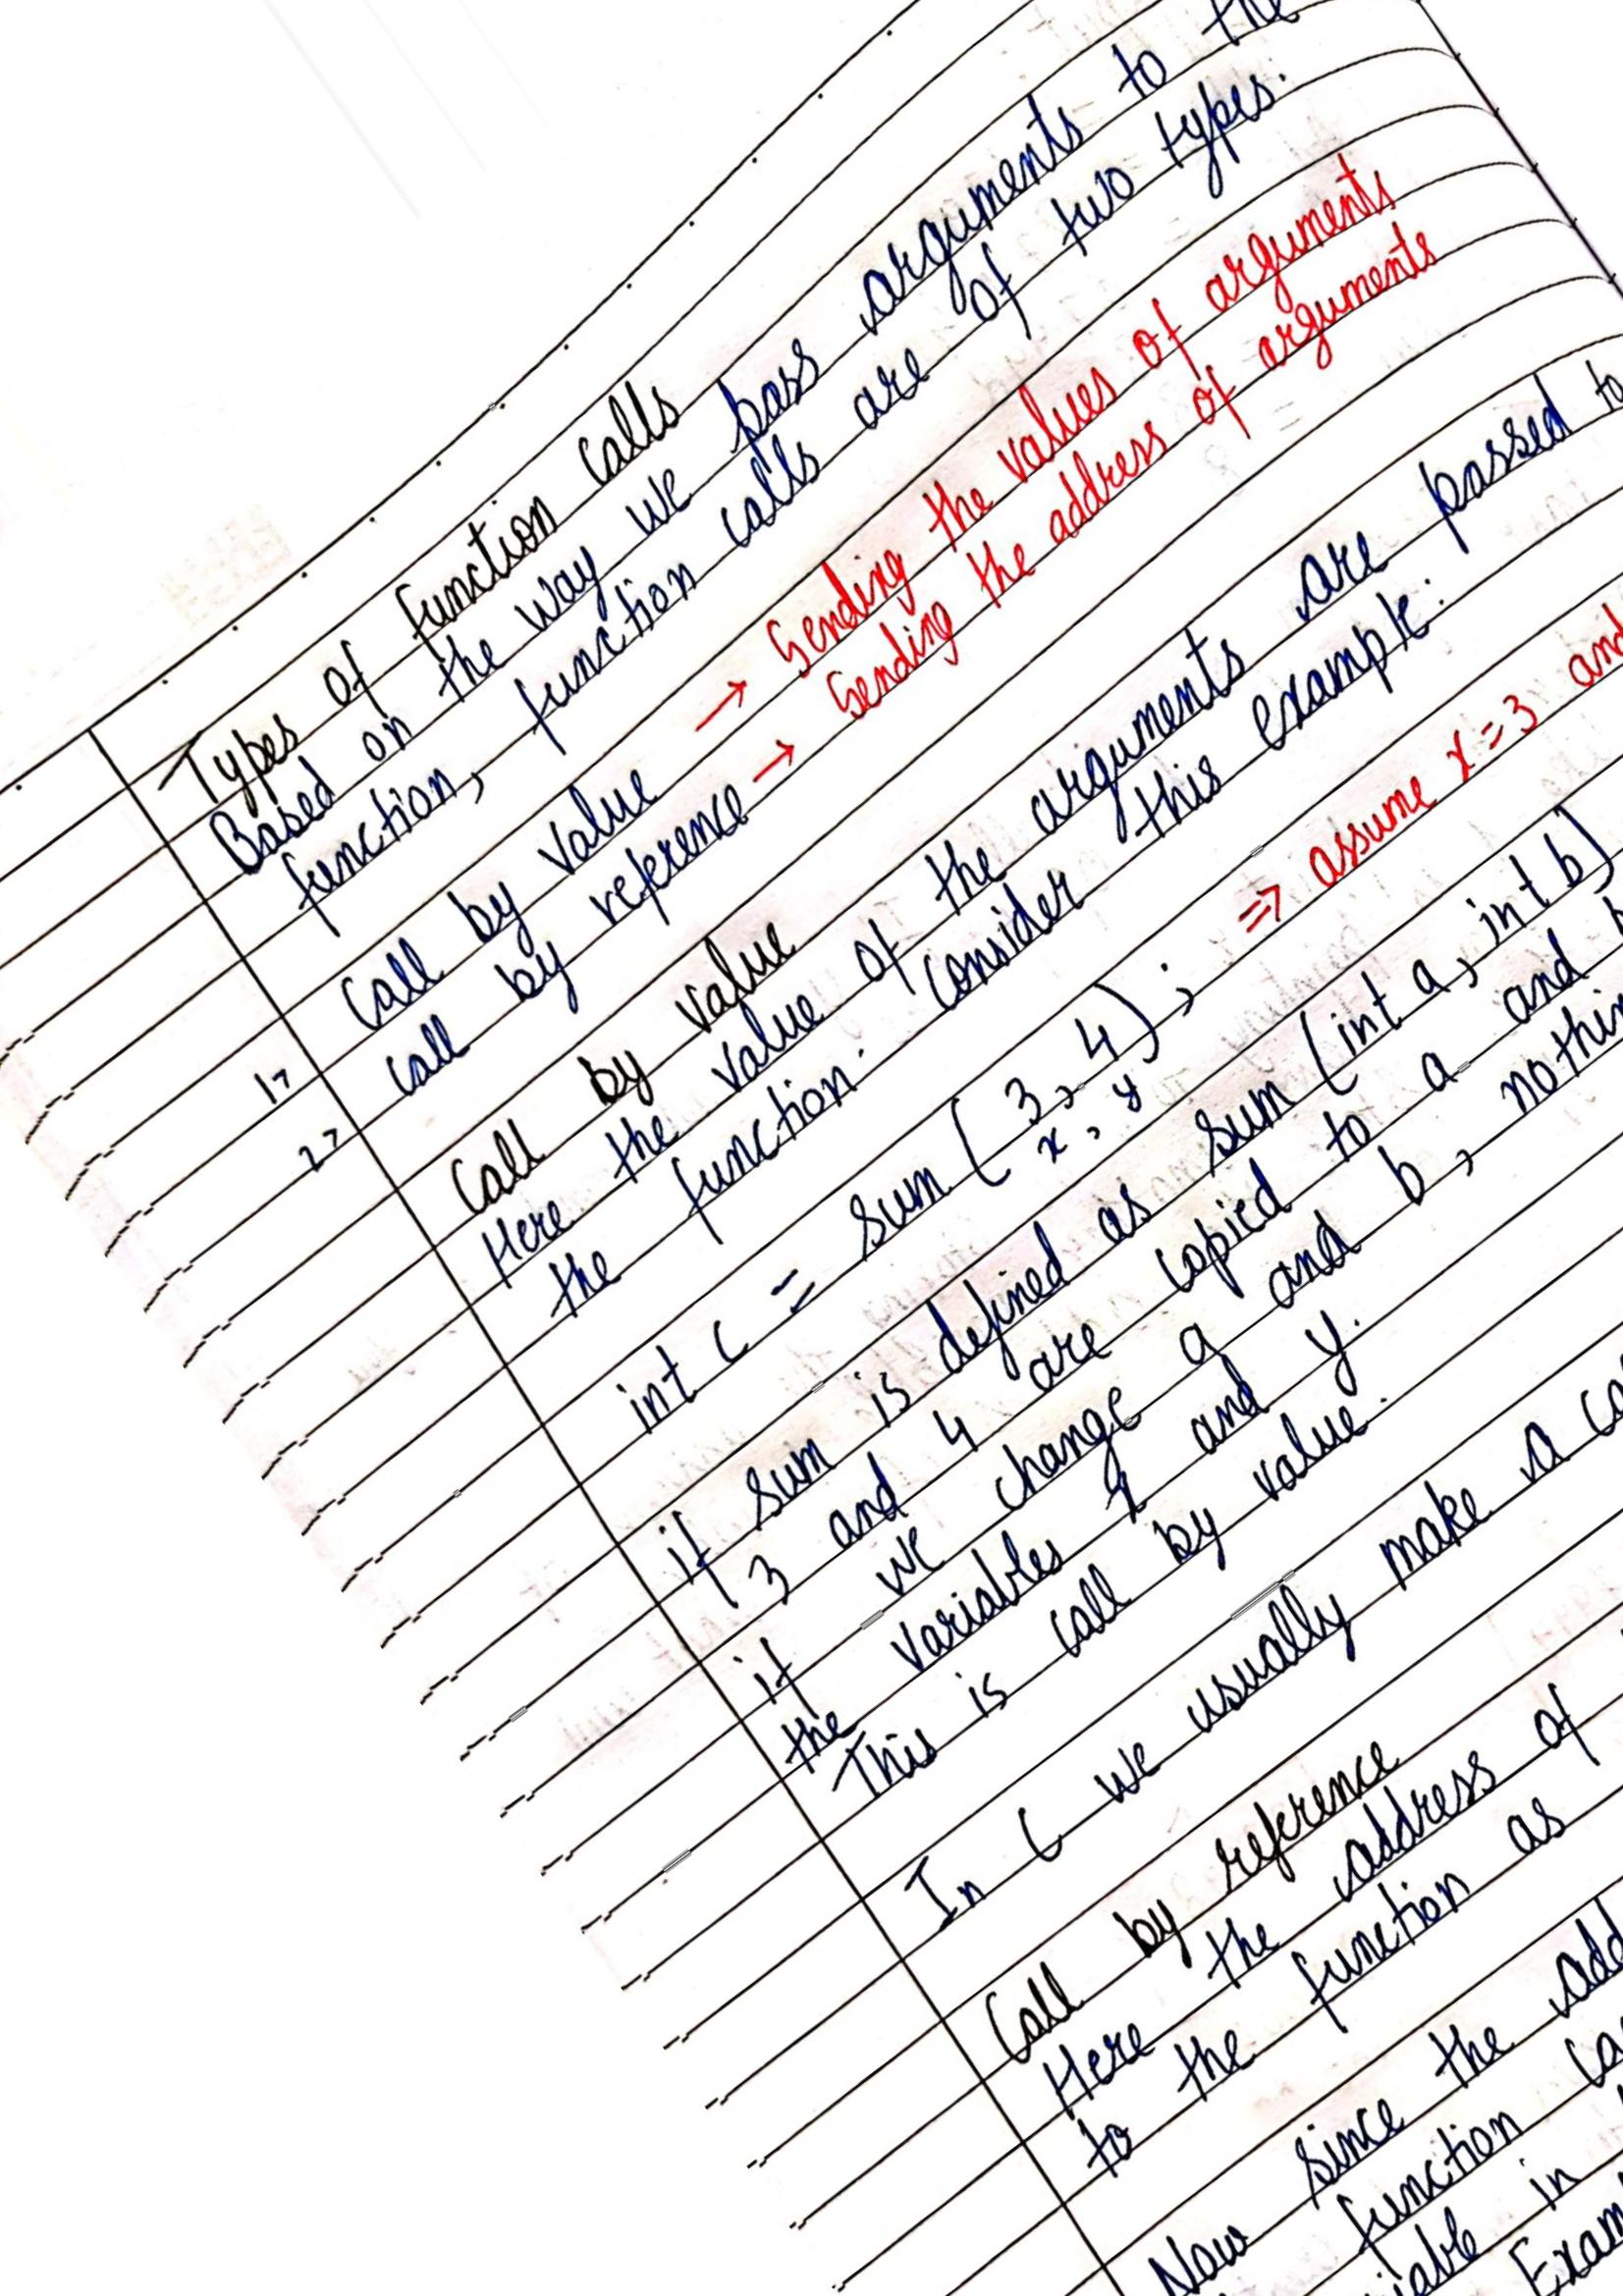 Types of function calls
Based on the way we pass arguments to the
function, function calls are of two types.
1> Call by value → Sending the values of arguments
2> Call by reference → Sending the address of arguments
Call by value
Here the value of the arguments are passed to
the function. Consider this example:
int c = sum (3, 4); ⇒ assume x = 3 and
x, y
if sum is defined as sum (int a, int b)
3 and 4 are copied to a and
if we change a and b,
the variables x and y.
This is call by value.
In C we usually make a
Call by reference
Here the address of
to the function as
Now since the
function
in